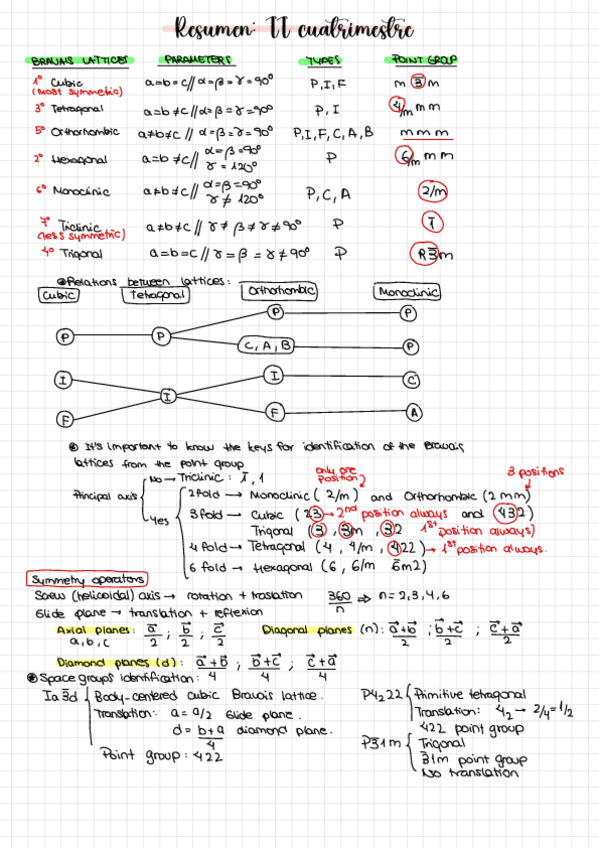 Resumen: II cuatrimestre
BRAVAIS LATTICES PARAMETERS TYPES POINT GROUP
1º Cubic a=b=c // α=β=γ=90º P, I, F m 3̅ m
(most symmetric)
3º Tetragonal a=b≠c // α=β=γ=90º P, I 4/m m m
5º Orthorhombic a≠b≠c // α=β=γ=90º P, I, F, C, A, B m m m
2º Hexagonal a=b≠c // α=β=90º γ=120º P 6/m m m
6º Monoclinic a≠b≠c // α=β=90º γ≠120º P, C, A 2/m
7º Triclinic a≠b≠c // γ≠β≠γ≠90º P 1̅
(less symmetric)
4º Trigonal a=b=c // γ=β=γ≠90º P R3̅m
Relations between lattices:
Cubic Tetragonal Orthorhombic Monoclinic
P P P P
C, A, B P
I I I C
F F A
It's important to know the keys for identification of the Bravais
lattices from the point group
Principal axis
No → Triclinic: 1̅, 1
only one position
3 positions
Yes
2 fold → Monoclinic (2/m) and Orthorhombic (2mm)
3 fold → Cubic (23 → 2nd position always and 432)
Trigonal (3, 3m, 32 1st position always)
4 fold → Tetragonal (4, 4/m, 422) → 1st position always.
6 fold → Hexagonal (6, 6/m 6̅m2)
Symmetry operators
Screw (helicoidal) axis → rotation + traslation 360/n ⇒ n=2,3,4,6
Glide plane → translation + reflexion
Axial planes: a⃗/2 ; b⃗/2 ; c⃗/2 Diagonal planes (n): a⃗+b⃗/2 ; b⃗+c⃗/2 ; c⃗+a⃗/2
a, b, c
Diamond planes (d): a⃗+b⃗/4 ; b⃗+c⃗/4 ; c⃗+a⃗/4
Space groups identification:
Ia3̅d Body-centered cubic Bravais lattice.
Translation: a = a/2 Glide plane.
d = b+a/4 diamond plane.
Point group: 422
P4₂22 Primitive tetragonal
Translation: 4₂ → 2/4=1/2
422 point group
P3̅1m Trigonal
3̅1m point group
No translation